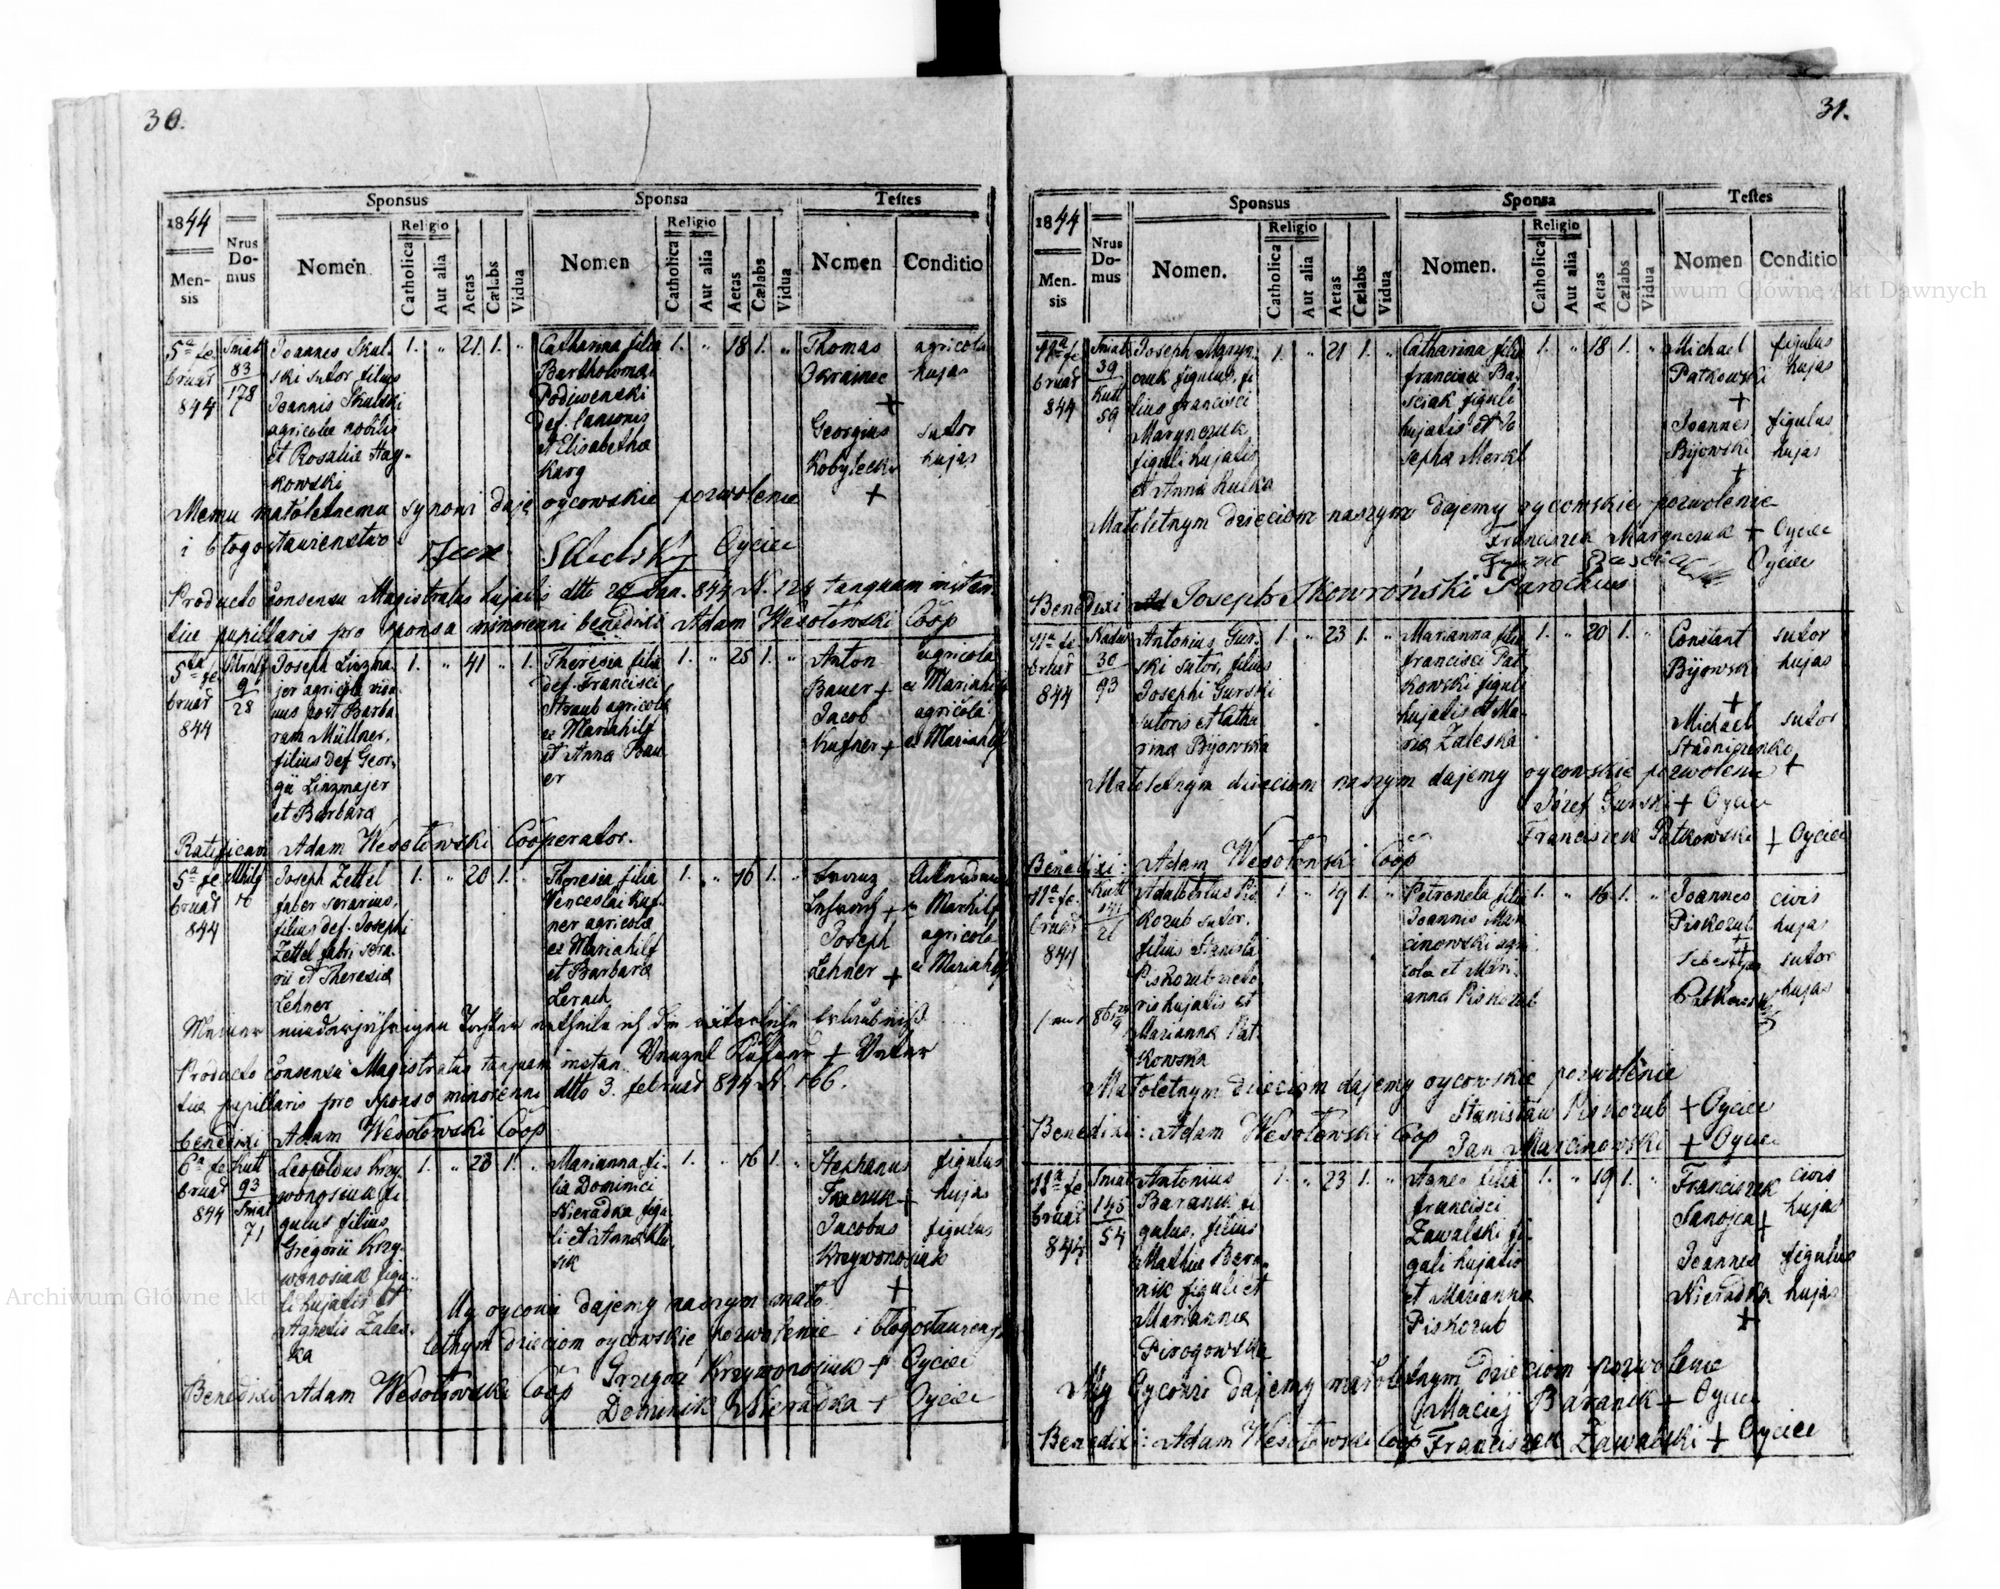 30.
1844
Mensis
Nrus Domus
Sponsus
Nomen
Religio
Catholica
Aut alia
Aetas
Cælabs
Vidua
Sponsa
Nomen
Religio
Catholica
Aut alia
Aetas
Cælabs
Vidua
Testes
Nomen
Conditio
5ª fe
bruar
844
Sniat
83
178
Joannes Skul-
ski sutor filius
Joannis Skulski
agricolæ nobilis
et Rosaliæ Hay-
kowski
1. " 21. 1. "
Catharina filia
Bartholomæi
Podewenski
def.
et Elisabetha
Karg
1. " 18 1. "
Thomas
Okrainec
+
Georgius
Kobylecki
+
agricola
hujas
sutor
hujas
Memu małoletnemu synowi daję oycowskie pozwolenie
i błogosławienstwo
Jan Skulski Oyciec
Producto Consensu Magistratus hujatis dtto 20 Jan. 844 N. 124 tanquam instan-
tiæ pupillaris pro sponsa minorenni benedixi Adam Wesołowski Coop
5ta fe
bruar
844
Mrhlf
9
28
Joseph Linzma-
jer agricola vid-
uus post Barba-
ram Müllner,
filius def Geor-
gii Linzmajer
et Barbara
1. " 41 " 1.
Theresia filia
def. Francisci
Straub agricolæ
ex Mariahilf
et Anna Bau-
er
1. " 25 1. "
Anton
Bauer +
Jacob
Kufner +
agricola
ex Mariahilf
agricola
ex Mariahilf
Ratificavi Adam Wesołowski Cooperator.
5ª fe
bruar
844
Mhilf
16
Joseph Zettel
faber serarius,
filius def. Josephi
Zettel fabri sera-
rii et Theresia
Lehner
1. " 20 1. "
Theresia filia
Venceslai Kuf-
ner agricolæ
ex Mariahilf
et Barbara
Lerach
1. " 16 1. "
Franz
+
Joseph
Lehner +
ex Marhilf
agricola
ex Mariahilf
Meiner minderjährigen Tochter ertheile ich die väterliche Erlaubniß
Wenzel Kufner + Vater
Producto Consensu Magistratus tanquam instan-
tiæ pupillaris pro sponso minorenni dtto 3. februar 844 N. 166.
benedixi Adam Wesołowski Coop
6ª fe
bruar
844
Kutt
93
Sniat
71
Leopoldus Krzy-
wonosiuk fi-
gulus filius
Gregorii Krzy-
wonosiuk figu-
li hujatis et
Agnetis Zales-
ka
1. " 23 1. "
Marianna fi-
lia Dominici
Nieradka figu-
li et Anna Klu-
sik
1. " 16 1. "
Stephanus
+
Jacobus
Krzywonosiuk
+
figulus
hujas
figulus
My oycowie dajemy naszym mało-
letnym dzieciom oycowskie pozwolenie i błogosławenst
Grzegorz Krzywonosiuk + Oyciec
Benedixi Adam Wesołowski Coop
Dominik Nieradka + Oyciec
31.
1844
Mensis
Nrus Domus
Sponsus
Nomen.
Religio
Catholica
Aut alia
Aetas
Cælabs
Vidua
Sponsa
Nomen.
Religio
Catholica
Aut alia
Aetas
Cælabs
Vidua
Testes
Nomen
Conditio
11ª fe
bruar
844
Sniat
39
Kutt
59
Joseph Maryn-
czuk figulus, fi-
lius francisci
Marynczuk
figuli hujatis
et Anna Kulka
1. " 21 1. "
Catharina filia
francisci Ba-
sciak figuli
hujatis et Jo-
sepha Merkl
1. " 18 1. "
Michael
Patkowski
+
Joannes
Bijowski
+
figulus
hujas
figulus
hujas
Małoletnym dzieciom naszym dajemy oycowskie pozwolenie
Franciszek Marynczuk + Oyciec
Oyciec
Benedixi Joseph Skowroński Parochus
11ª fe
bruar
844
Nadw
30
93
Antonius Gur-
ski sutor, filius
Josephi Gurski
sutoris et Catha-
rina Bijowska
1. " 23 1. "
Marianna filia
francisci Pat-
kowski figuli
hujatis et Ma-
ria Zaleska
1. " 20 1. "
Constant
Bijowski
+
Michael
Stadniczenko
+
sutor
hujas
sutor
Małoletnym dzieciom naszym dajemy oycowskie pozwolenie
Józef Gurski + Oyciec
Franciszek Patkowski + Oyciec
Benedixi: Adam Wesołowski Coop
11ª fe.
bruar
844
Kutt
141
21
Adalbertus Pis-
kozub sutor,
filius Stanislai
Piskozub suto-
ris hujatis et
Marianna Pat-
kowska
1. " 19 1. "
Petronela filia
Joannis Mar-
cinowski agri-
colæ et Mari-
anna Piskozub
1. " 16 1. "
Joannes
Piskozub
+
Sebastyan
Patkowski
civis
hujas
sutor
hujas
Małoletnym dzieciom dajemy oycowskie pozwolenie
Stanisław Piskozub + Oyciec
Benedixi: Adam Wesołowski Coop
Jan Marcinowski + Oyciec
11ª fe
bruar
844
Sniat
145
54
Antonius
Baranik fi-
gulus, filius
Mathiæ Bara-
nik figuli et
Marianna
Pirogowska
1. " 23 1. "
Agnes filia
francisci
Zawalski fi-
guli hujatis
et Marianna
Piskozub
1. " 19 1. "
Franciszek
Sanojca +
Joannes
Nieradka
+
civis
hujas
figulus
hujas
My Oycowie dajemy małoletnym dzieciom pozwolenie
Maciej Baranik + Oyciec
Benedixi: Adam Wesołowski Coop Franciszek Zawalski + Oyciec
Archiwum Główne Akt Dawnych
Archiwum Główne Akt Dawnych